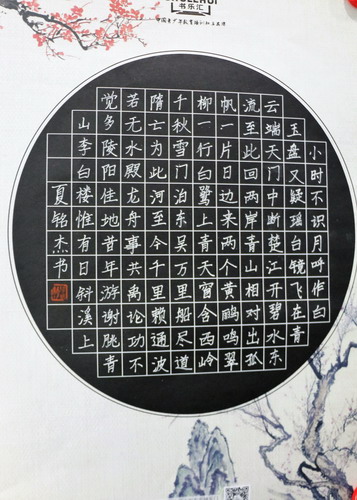 书乐汇
小时不识月呼作白
玉盘又疑瑶台镜飞在青
云端天门中断楚江开碧水东
流至此回两岸青山相对出孤
帆一片日边来两个黄鹂鸣翠
柳一行白鹭上青天窗含西岭
千秋雪门泊东吴万里船尽道
隋亡为此河至今千里赖通波
若无水殿龙舟事共禹论功不
觉多陵阳佳地昔年游谢朓青
山李白楼惟有日斜溪上
夏铭杰书